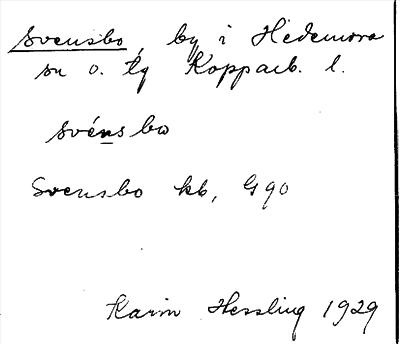 Svensbo, by i Hedemora
sn o. tg Kopparb. l.
svénsbω
Svensbo kb, G 90
Karin Hessling 1929